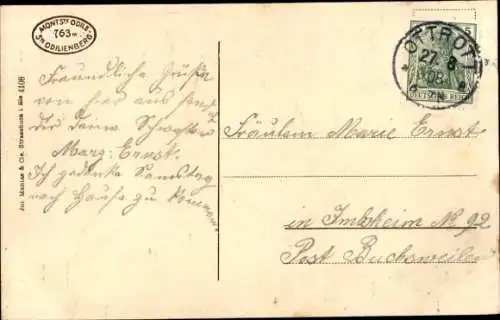 MONT STE ODILE
763 m
ST ODILIENBERG
Freundliche Grüße
von hier aus
Dir Deine Schwester
Marg. Ernst.
Ich gedenke Samstag
nach Hause zu kommen.
Jul. Manias & Cie. Strassburg i. Els. 4108
OTTROTT
27 8
08
DEUTSCHES REICH
5
Fräulein Marie Ernst
in Imbsheim N 92
Post Buchsweiler